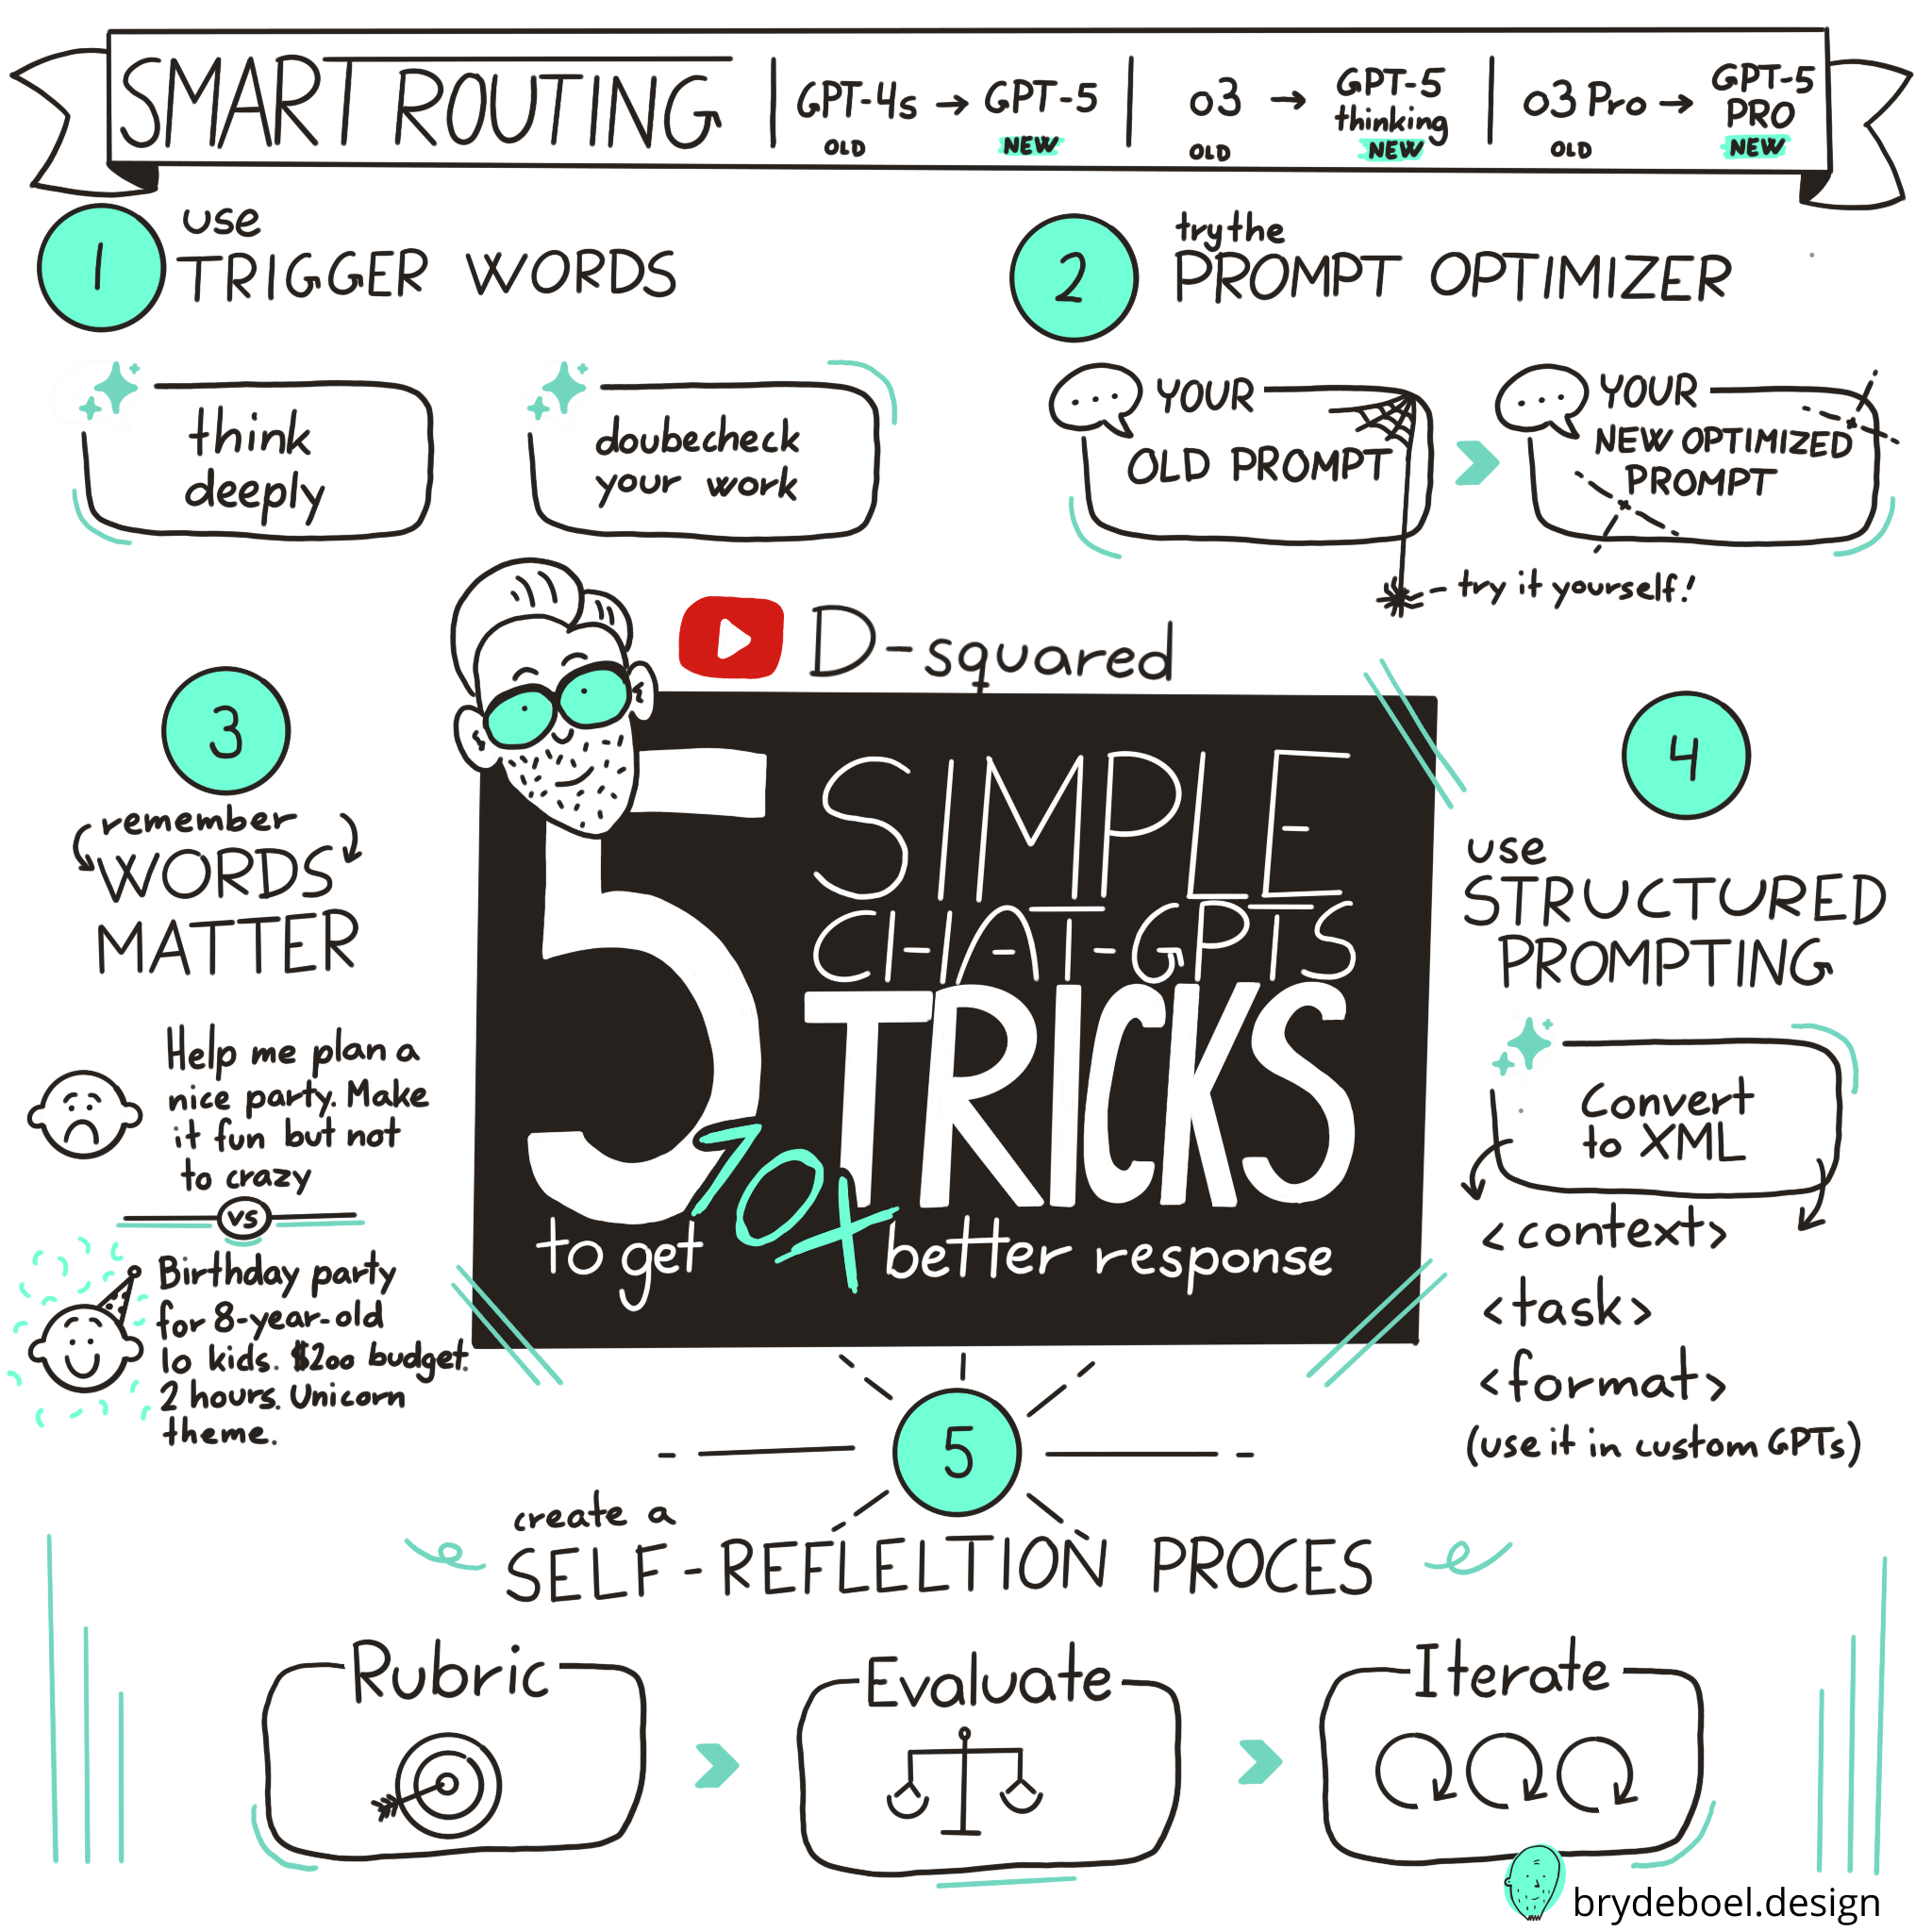 SMART ROUTING
GPT-4s → GPT-5
OLD NEW
o3 → GPT-5 thinking
OLD NEW
o3 Pro → GPT-5 PRO
OLD NEW
1
use
TRIGGER WORDS
think
deeply
doubecheck
your work
2
try the
PROMPT OPTIMIZER
YOUR
OLD PROMPT
YOUR
NEW OPTIMIZED
PROMPT
- try it yourself!
D-squared
5 SIMPLE
CHAT-GPT5
TRICKS
to get 10x better response
3
remember
WORDS
MATTER
Help me plan a
nice party. Make
it fun but not
to crazy
VS
Birthday party
for 8-year-old
10 kids. $200 budget.
2 hours. Unicorn
theme.
4
use
STRUCTURED
PROMPTING
Convert
to XML
<context>
<task>
<format>
(use it in custom GPTs)
5
create a
SELF-REFLELTION PROCES
Rubric
Evaluate
Iterate
brydeboel.design